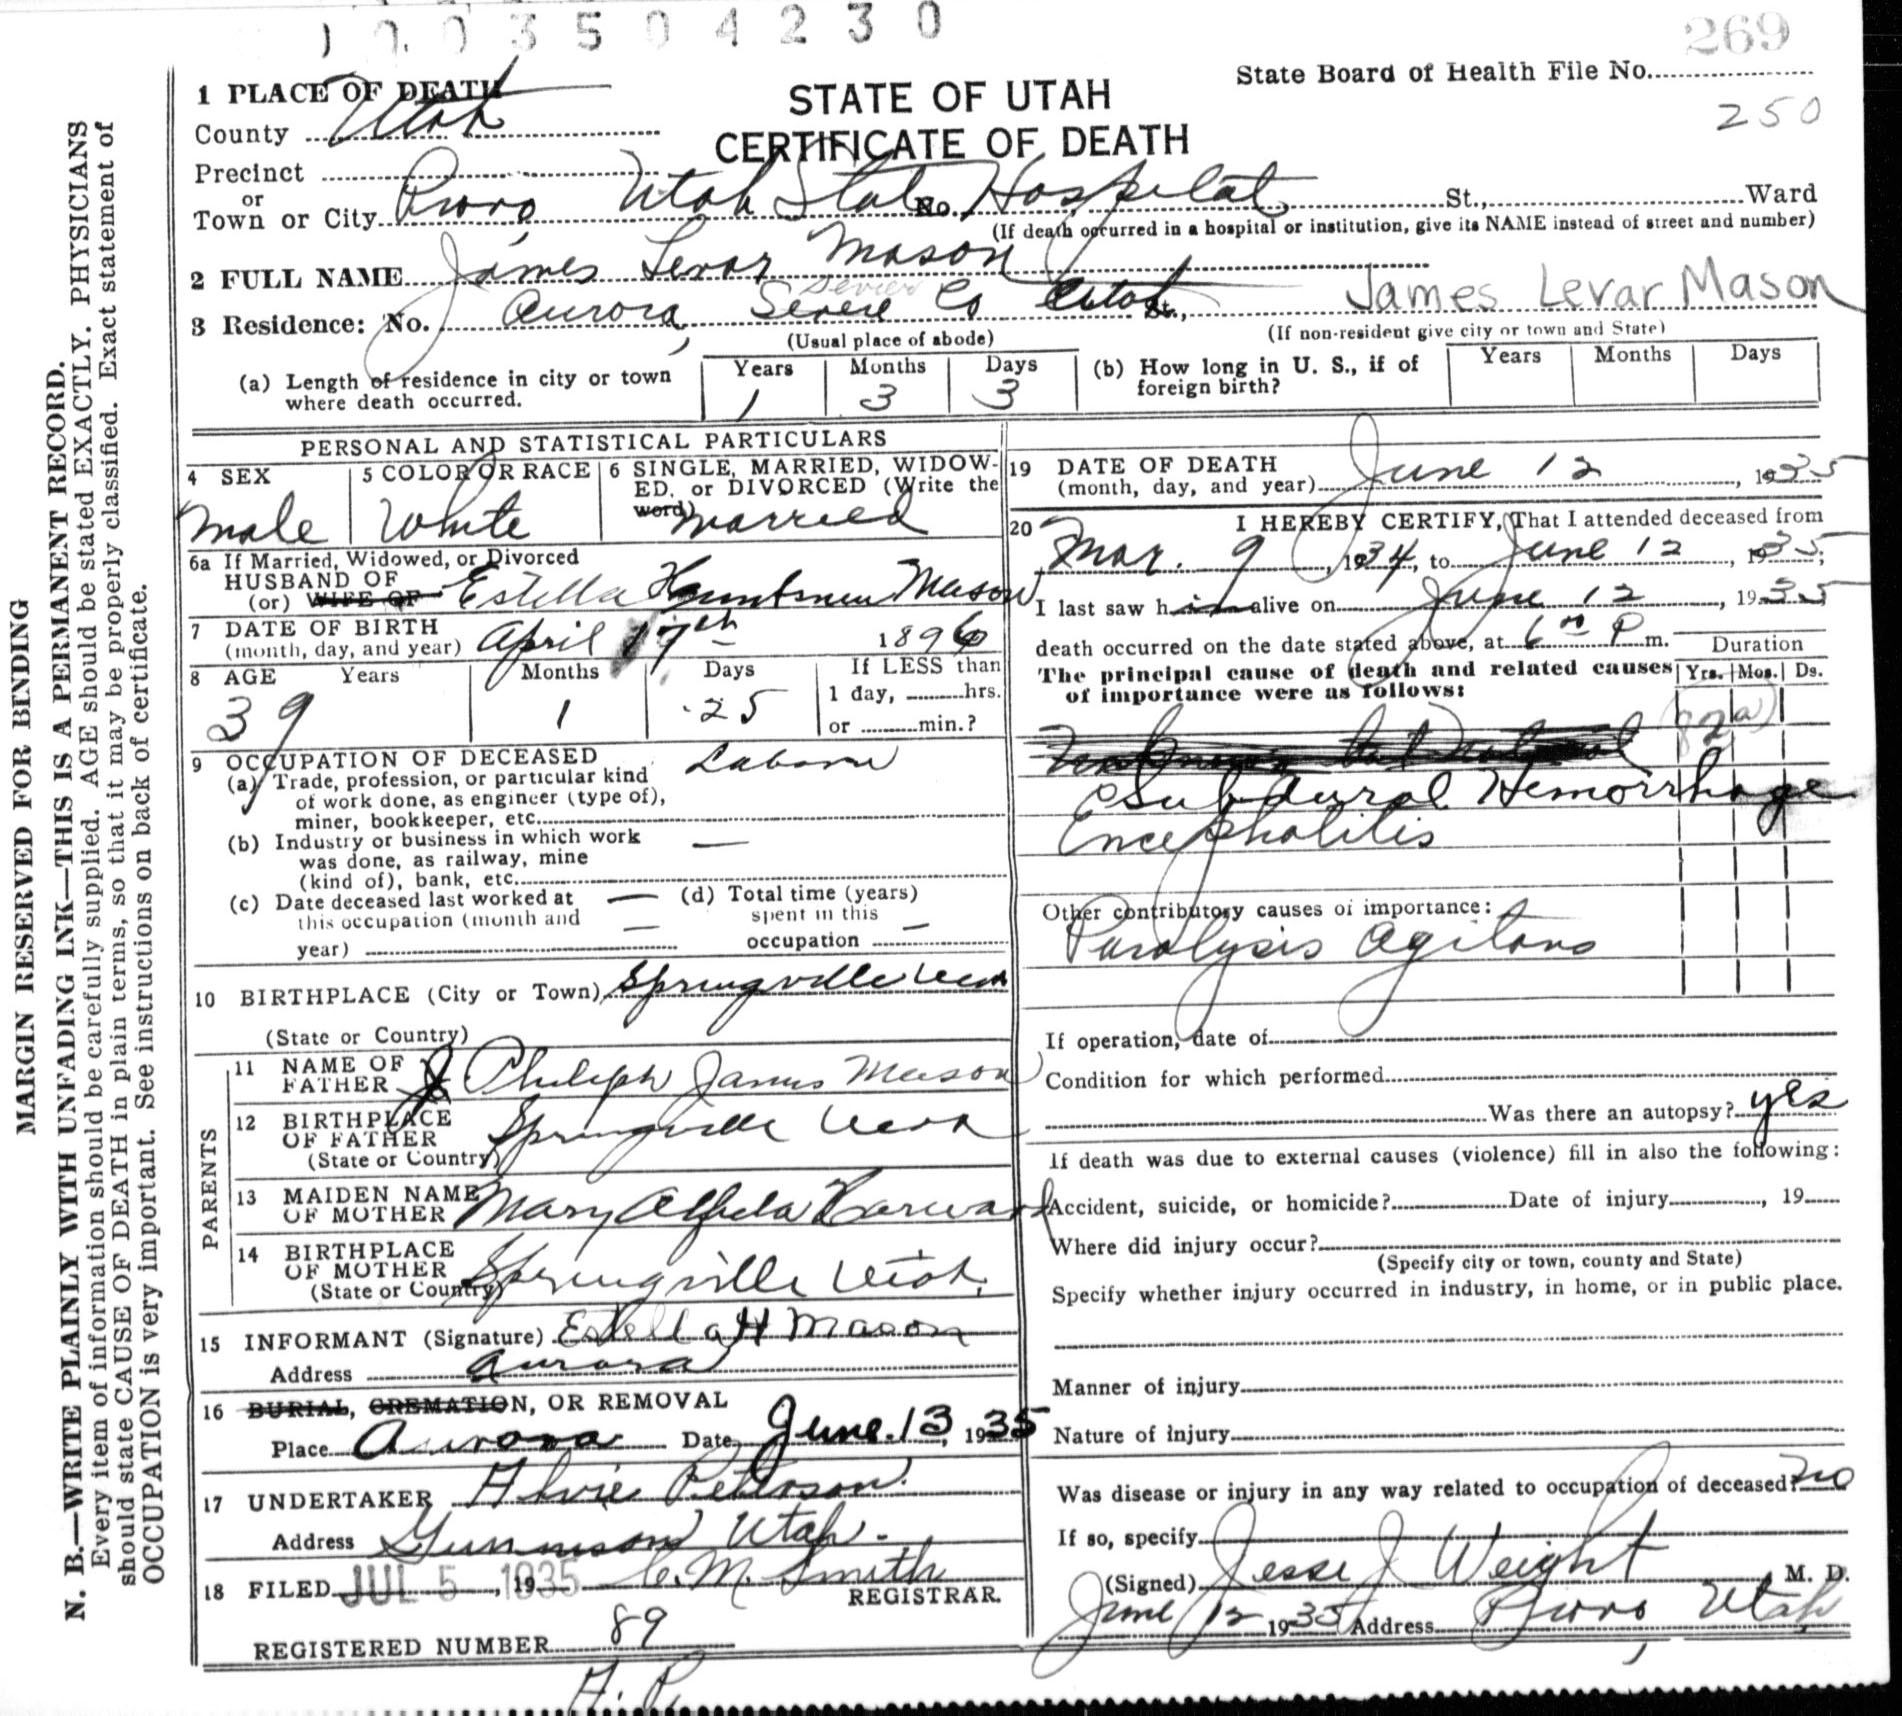 1003504230
269
State Board of Health File No.
250
STATE OF UTAH
CERTIFICATE OF DEATH
1 PLACE OF DEATH
County Utah
Precinct
or
Town or City Provo, Utah State No. Hospital St., Ward
(If death occurred in a hospital or institution, give its NAME instead of street and number)
2 FULL NAME James Levar Mason
Sevier
James Levar Mason
3 Residence: No. Aurora, Severe Co Utah St.,
(Usual place of abode)
(If non-resident give city or town and State)
(a) Length of residence in city or town where death occurred. Years 1 Months 3 Days 3
(b) How long in U. S., if of foreign birth? Years Months Days
PERSONAL AND STATISTICAL PARTICULARS
4 SEX
Male
5 COLOR OR RACE
White
6 SINGLE, MARRIED, WIDOW-
ED, or DIVORCED (Write the
word) Married
6a If Married, Widowed, or Divorced
HUSBAND OF
(or) WIFE OF Estella Huntsman Mason
7 DATE OF BIRTH
(month, day, and year) April 17th 1896
8 AGE Years Months Days If LESS than
39 1 25 1 day, hrs.
or min.?
9 OCCUPATION OF DECEASED
(a) Trade, profession, or particular kind
of work done, as engineer (type of),
miner, bookkeeper, etc.
(b) Industry or business in which work —
was done, as railway, mine
(kind of), bank, etc.
(c) Date deceased last worked at —
this occupation (month and —
year)
(d) Total time (years)
spent in this —
occupation
10 BIRTHPLACE (City or Town) Springville Utah
(State or Country)
PARENTS
11 NAME OF
FATHER Philiph James Mason
12 BIRTHPLACE
OF FATHER Springville Utah
(State or Country)
13 MAIDEN NAME
OF MOTHER Mary Harward
14 BIRTHPLACE
OF MOTHER Springville Utah.
(State or Country)
15 INFORMANT (Signature) Estella H Mason
Address Aurora
16 BURIAL, CREMATION, OR REMOVAL
Place Aurora Date June 13, 1935
17 UNDERTAKER Peterson
Address Gunnison Utah.
18 FILED JUL 5 1935, 1935 C. M. Smith
REGISTRAR.
REGISTERED NUMBER 89
H. P.
19 DATE OF DEATH
(month, day, and year) June 12, 1935
20 I HEREBY CERTIFY, That I attended deceased from
Mar. 9, 1934, to June 12, 1935;
I last saw him alive on June 12, 1935
death occurred on the date stated above, at 6 P m.
Duration
The principal cause of death and related causes
of importance were as follows:
Yrs. Mos. Ds.
82a)
Subdural Hemorrhage
Encephalitis
Other contributory causes of importance:
Paralysis Agitans
If operation, date of
Condition for which performed
Was there an autopsy? yes
If death was due to external causes (violence) fill in also the following:
Accident, suicide, or homicide? Date of injury, 19
Where did injury occur?
(Specify city or town, county and State)
Specify whether injury occurred in industry, in home, or in public place.
Manner of injury
Nature of injury
Was disease or injury in any way related to occupation of deceased? no
If so, specify
(Signed) Jesse J Weight M. D.
June 12 1935 Address Provo, Utah
MARGIN RESERVED FOR BINDING
N. B.—WRITE PLAINLY WITH UNFADING INK—THIS IS A PERMANENT RECORD.
Every item of information should be carefully supplied. AGE should be stated EXACTLY. PHYSICIANS
should state CAUSE OF DEATH in plain terms, so that it may be properly classified. Exact statement of
OCCUPATION is very important. See instructions on back of certificate.